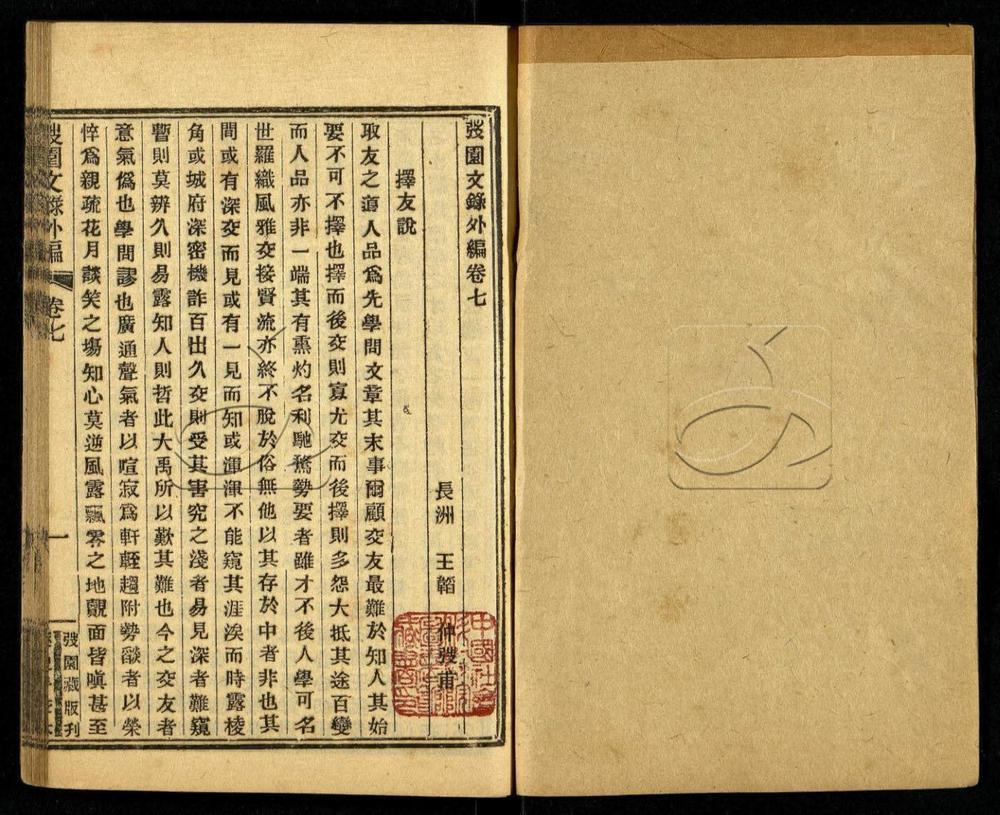 弢園文錄外編卷七
長洲 王韜 仲弢甫
擇友說
取友之道人品爲先學問文章其末事爾顧交友最難於知人其始
要不可不擇也擇而後交則寡尤交而後擇則多怨大抵其途百變
而人品亦非一端其有熏灼名利馳騖勢要者雖才不後人學可名
世羅織風雅交接賢流亦終不脫於俗無他以其存於中者非也其
間或有深交而見或有一見而知或渾渾不能窺其涯涘而時露棱
角或城府深密機詐百出久交則受其害究之淺者易見深者難窺
暫則莫辨久則易露知人則哲此大禹所以歎其難也今之交友者
意氣僞也學問謬也廣通聲氣者以喧寂爲軒輊趨附勢燄者以榮
悴爲親疏花月談笑之場知心莫逆風露飄零之地覿面皆嗔甚至
弢園文錄外編 卷七 一
弢園藏版刊